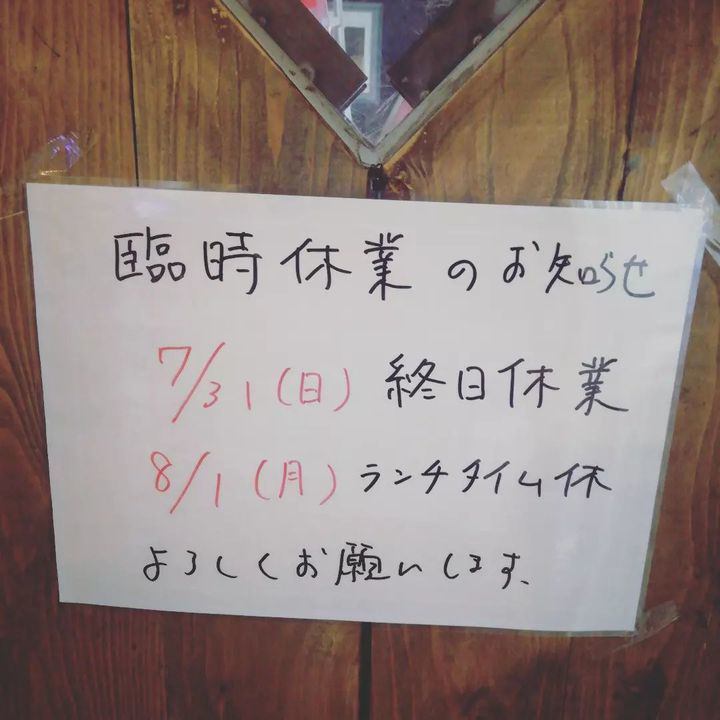 臨時休業のお知らせ
7/31(日) 終日休業
8/1(月) ランチタイム休
よろしくお願いします、